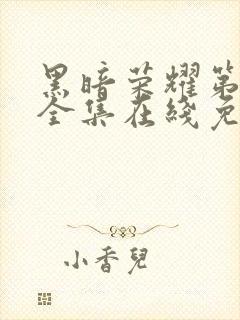 黑暗荣耀第
全集在线免
小香兒